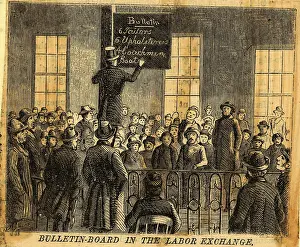 Bulletin
6 Tailors
5 Upholsterers
4 Coachmen
Boat
BULLETIN-BOARD IN THE LABOR EXCHANGE.